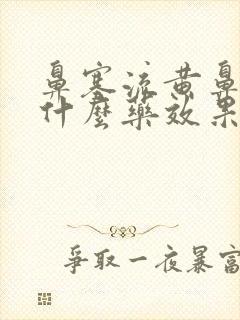 鼻塞流黄鼻
什麼藥效果
爭取一夜暴富